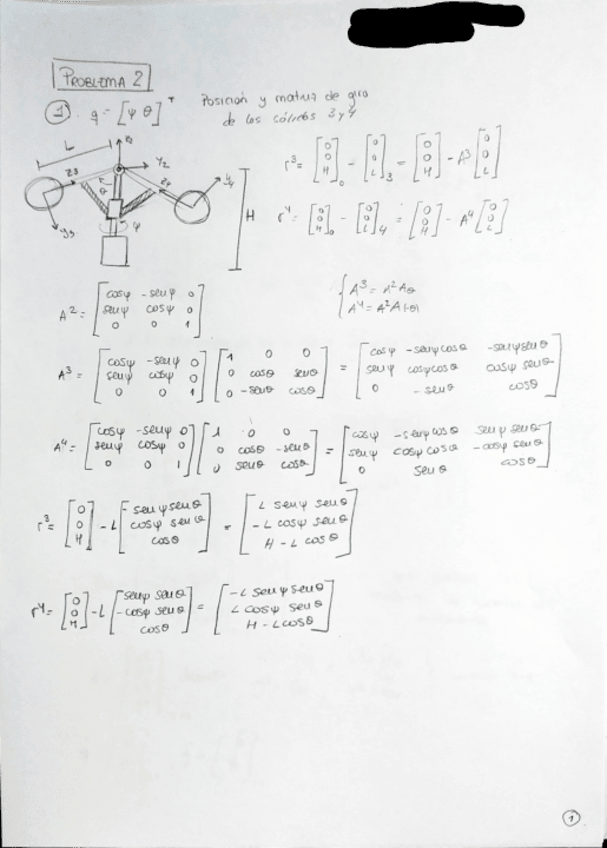 PROBLEMA 2
1). q = [ψ θ]ᵀ Posición y matriz de giro
de los sólidos 3 y 4
L
Z2
Y2
Z3
θ
Z4
Y4
Y3
ψ
H
r³ = [0 0 H]₀ - [0 0 L]₃ = [0 0 H] - A³ [0 0 L]
r⁴ = [0 0 H]₀ - [0 0 L]₄ = [0 0 H] - A⁴ [0 0 L]
A³ = A² Aθ
A⁴ = A² A(-θ)
A² = [cosψ -senψ 0; senψ cosψ 0; 0 0 1]
A³ = [cosψ -senψ 0; senψ cosψ 0; 0 0 1] [1 0 0; 0 cosθ senθ; 0 -senθ cosθ] = [cosψ -senψcosθ -senψsenθ; senψ cosψcosθ cosψ senθ; 0 -senθ cosθ]
A⁴ = [cosψ -senψ 0; senψ cosψ 0; 0 0 1] [1 0 0; 0 cosθ -senθ; 0 senθ cosθ] = [cosψ -senψ cosθ senψ senθ; senψ cosψ cosθ -cosψ senθ; 0 senθ cosθ]
r³ = [0 0 H] - L [-senψ senθ; cosψ senθ; cosθ] = [L senψ senθ; -L cosψ senθ; H - L cosθ]
r⁴ = [0 0 H] - L [senψ senθ; -cosψ senθ; cosθ] = [-L senψ senθ; L cosψ senθ; H - L cosθ]
1